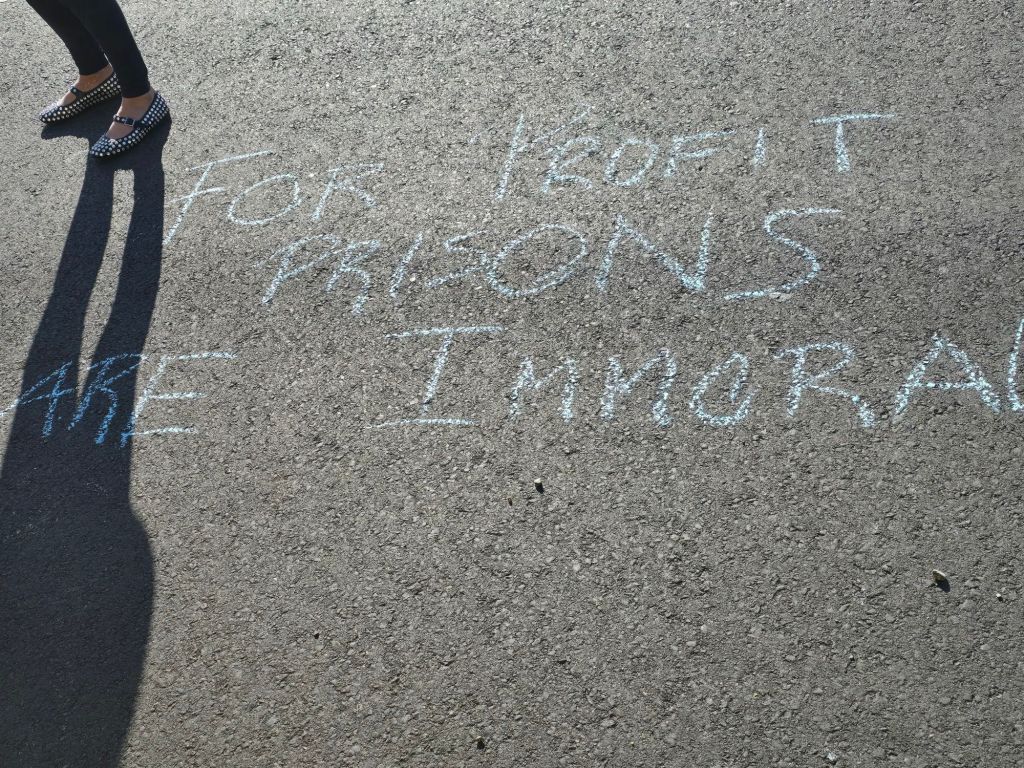 FOR PROFIT
PRISONS
ARE IMMORAL